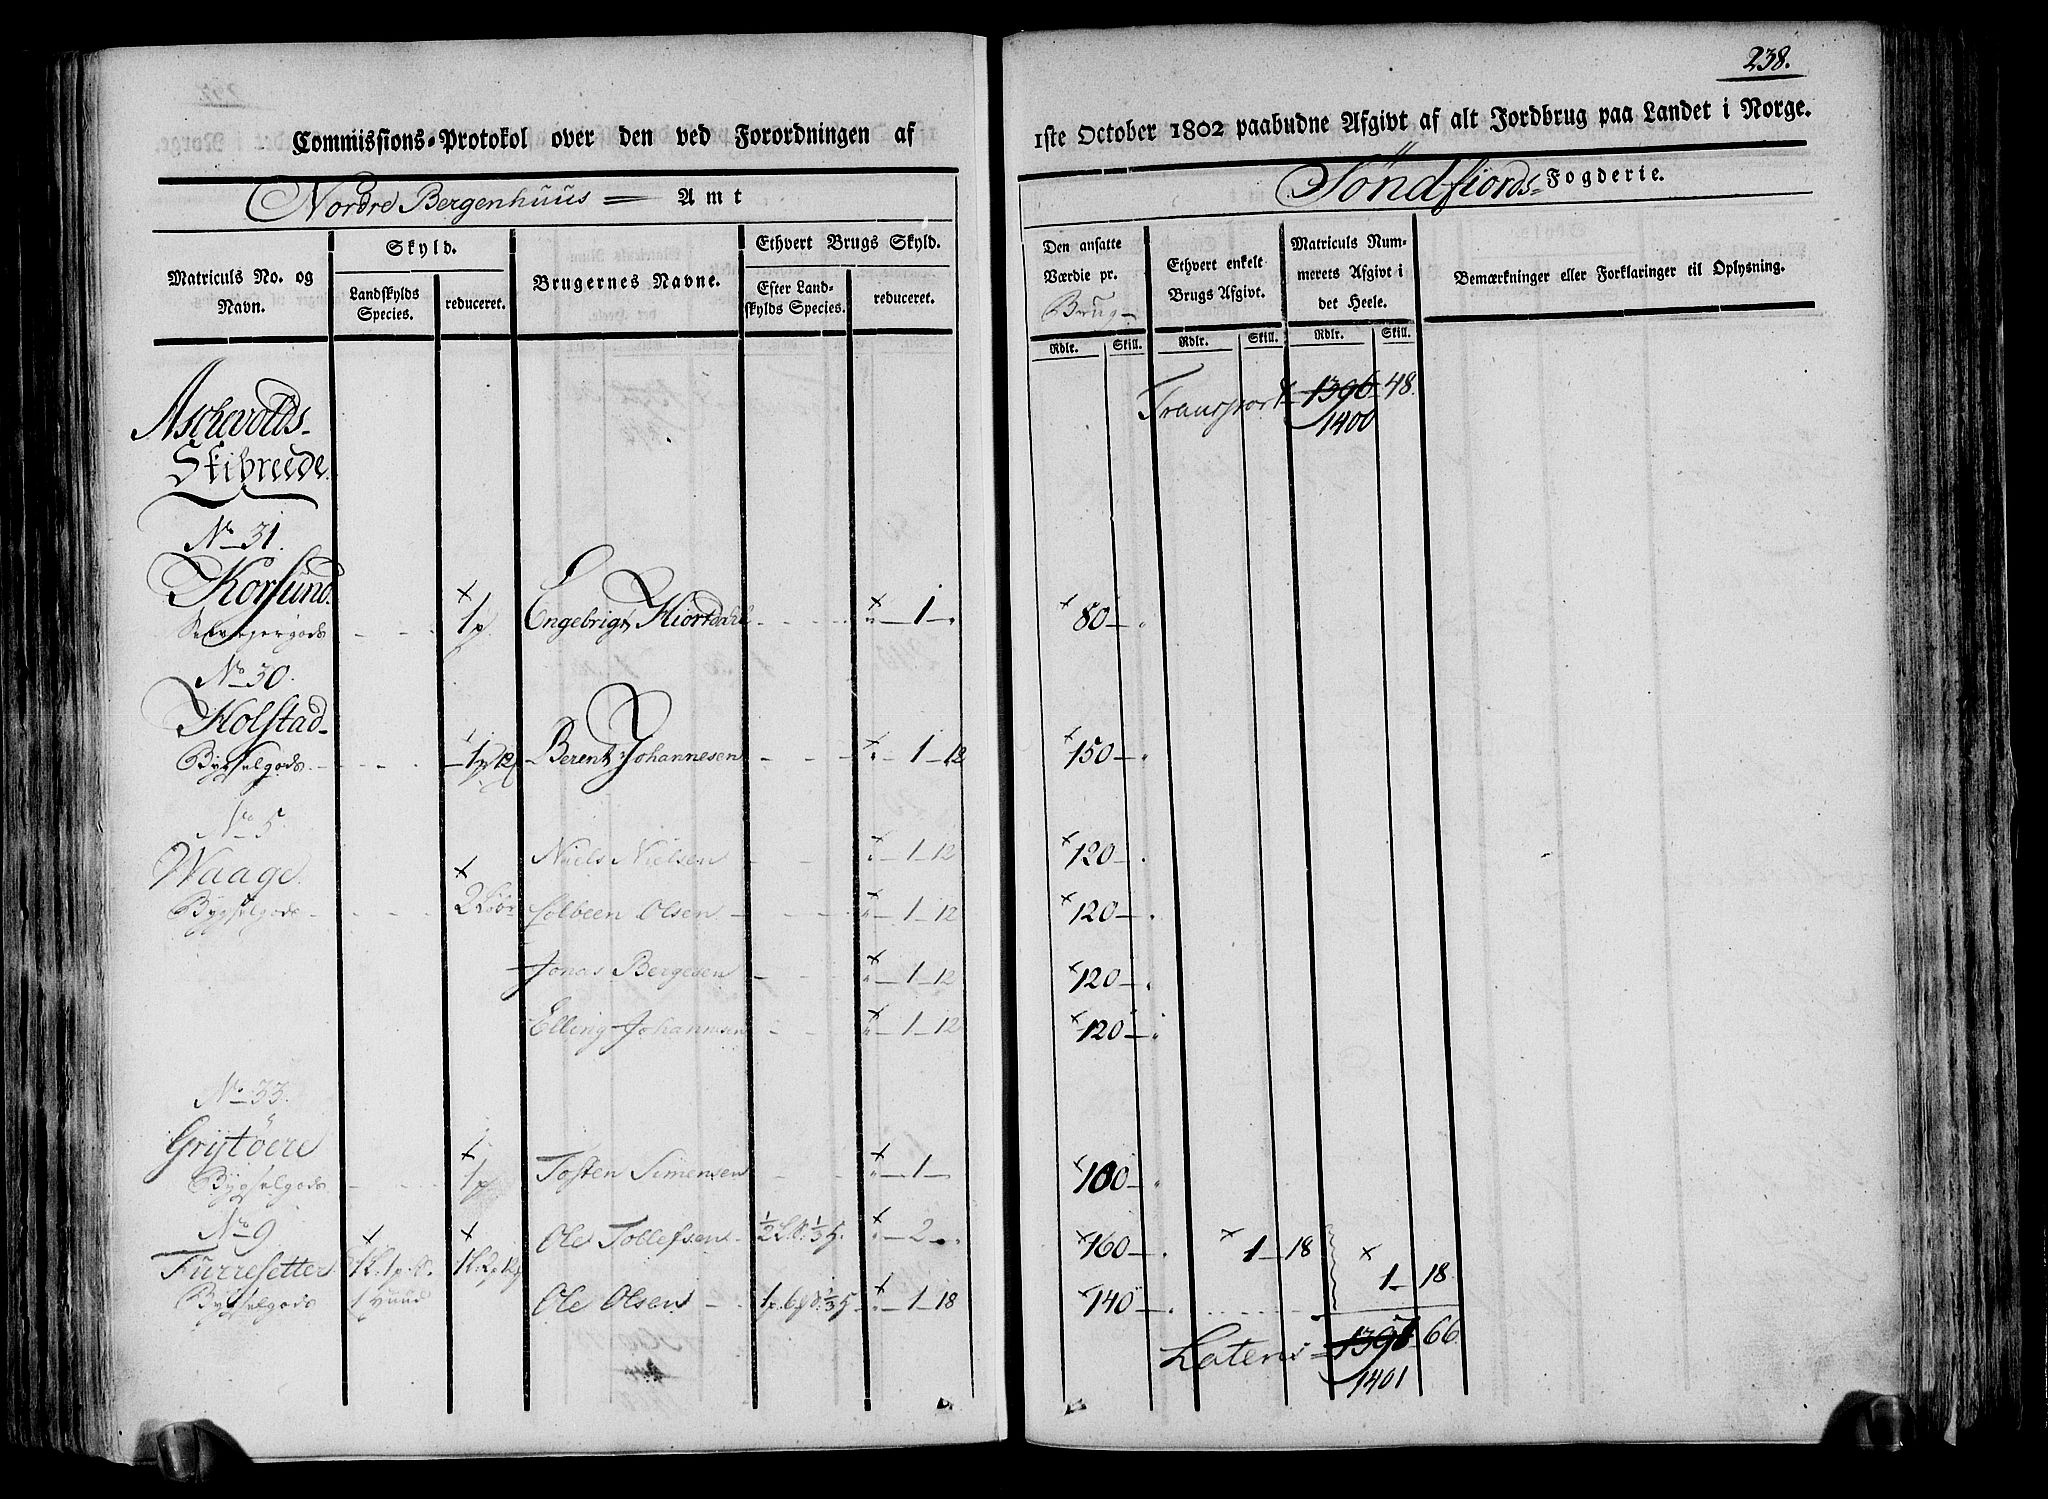 238.
Commissions-Protokol over den ved Forordningen af
1ste October 1802 paabudne Afgivt af alt Jordbrug paa Landet i Norge.
Nordre Bergenhuus Amt
Söndfiords Fogderie.
Matriculs No. og Navn.
Skyld.
Landskylds Species.
reduceret.
Brugernes Navne.
Ethvert Brugs Skyld.
Efter Landskylds Species.
reduceret.
Den ansatte Værdie pr. Brug
Ethvert enkelt Brugs Afgivt.
Matriculs Nummerets Afgivt i det Heele.
Bemærkninger eller Forklaringer til Oplysning.
Rdlr. Skill. Rdlr. Skill. Rdlr. Skill.
Transport 1396 48.
1400
Aschevolds
Skibreede.
No 31.
Korsund.
Selveyergods 1p Engebrigt Hiortdahl 1 80
No 30.
Kolstad
Bygselgods 1p 12 Berent Johannesen 1 12 150
No 5.
Waage
Niels Nielsen 1 12 120
Bygselgods 2 Løb Colbeen Olsen 1 12 120
Jonas Bergesen 1 12 120
Elling Johannesen 1 12 120
No 33.
Grytöere
Bygselgods 1p Tosten Simensen 1 100
No 9
Furresetter Ole Tollefsen 2 160 1 18
1 18.
Bygselgods 1 Huud Ole Olsen 1 18 140
Latens 1397 66
1401